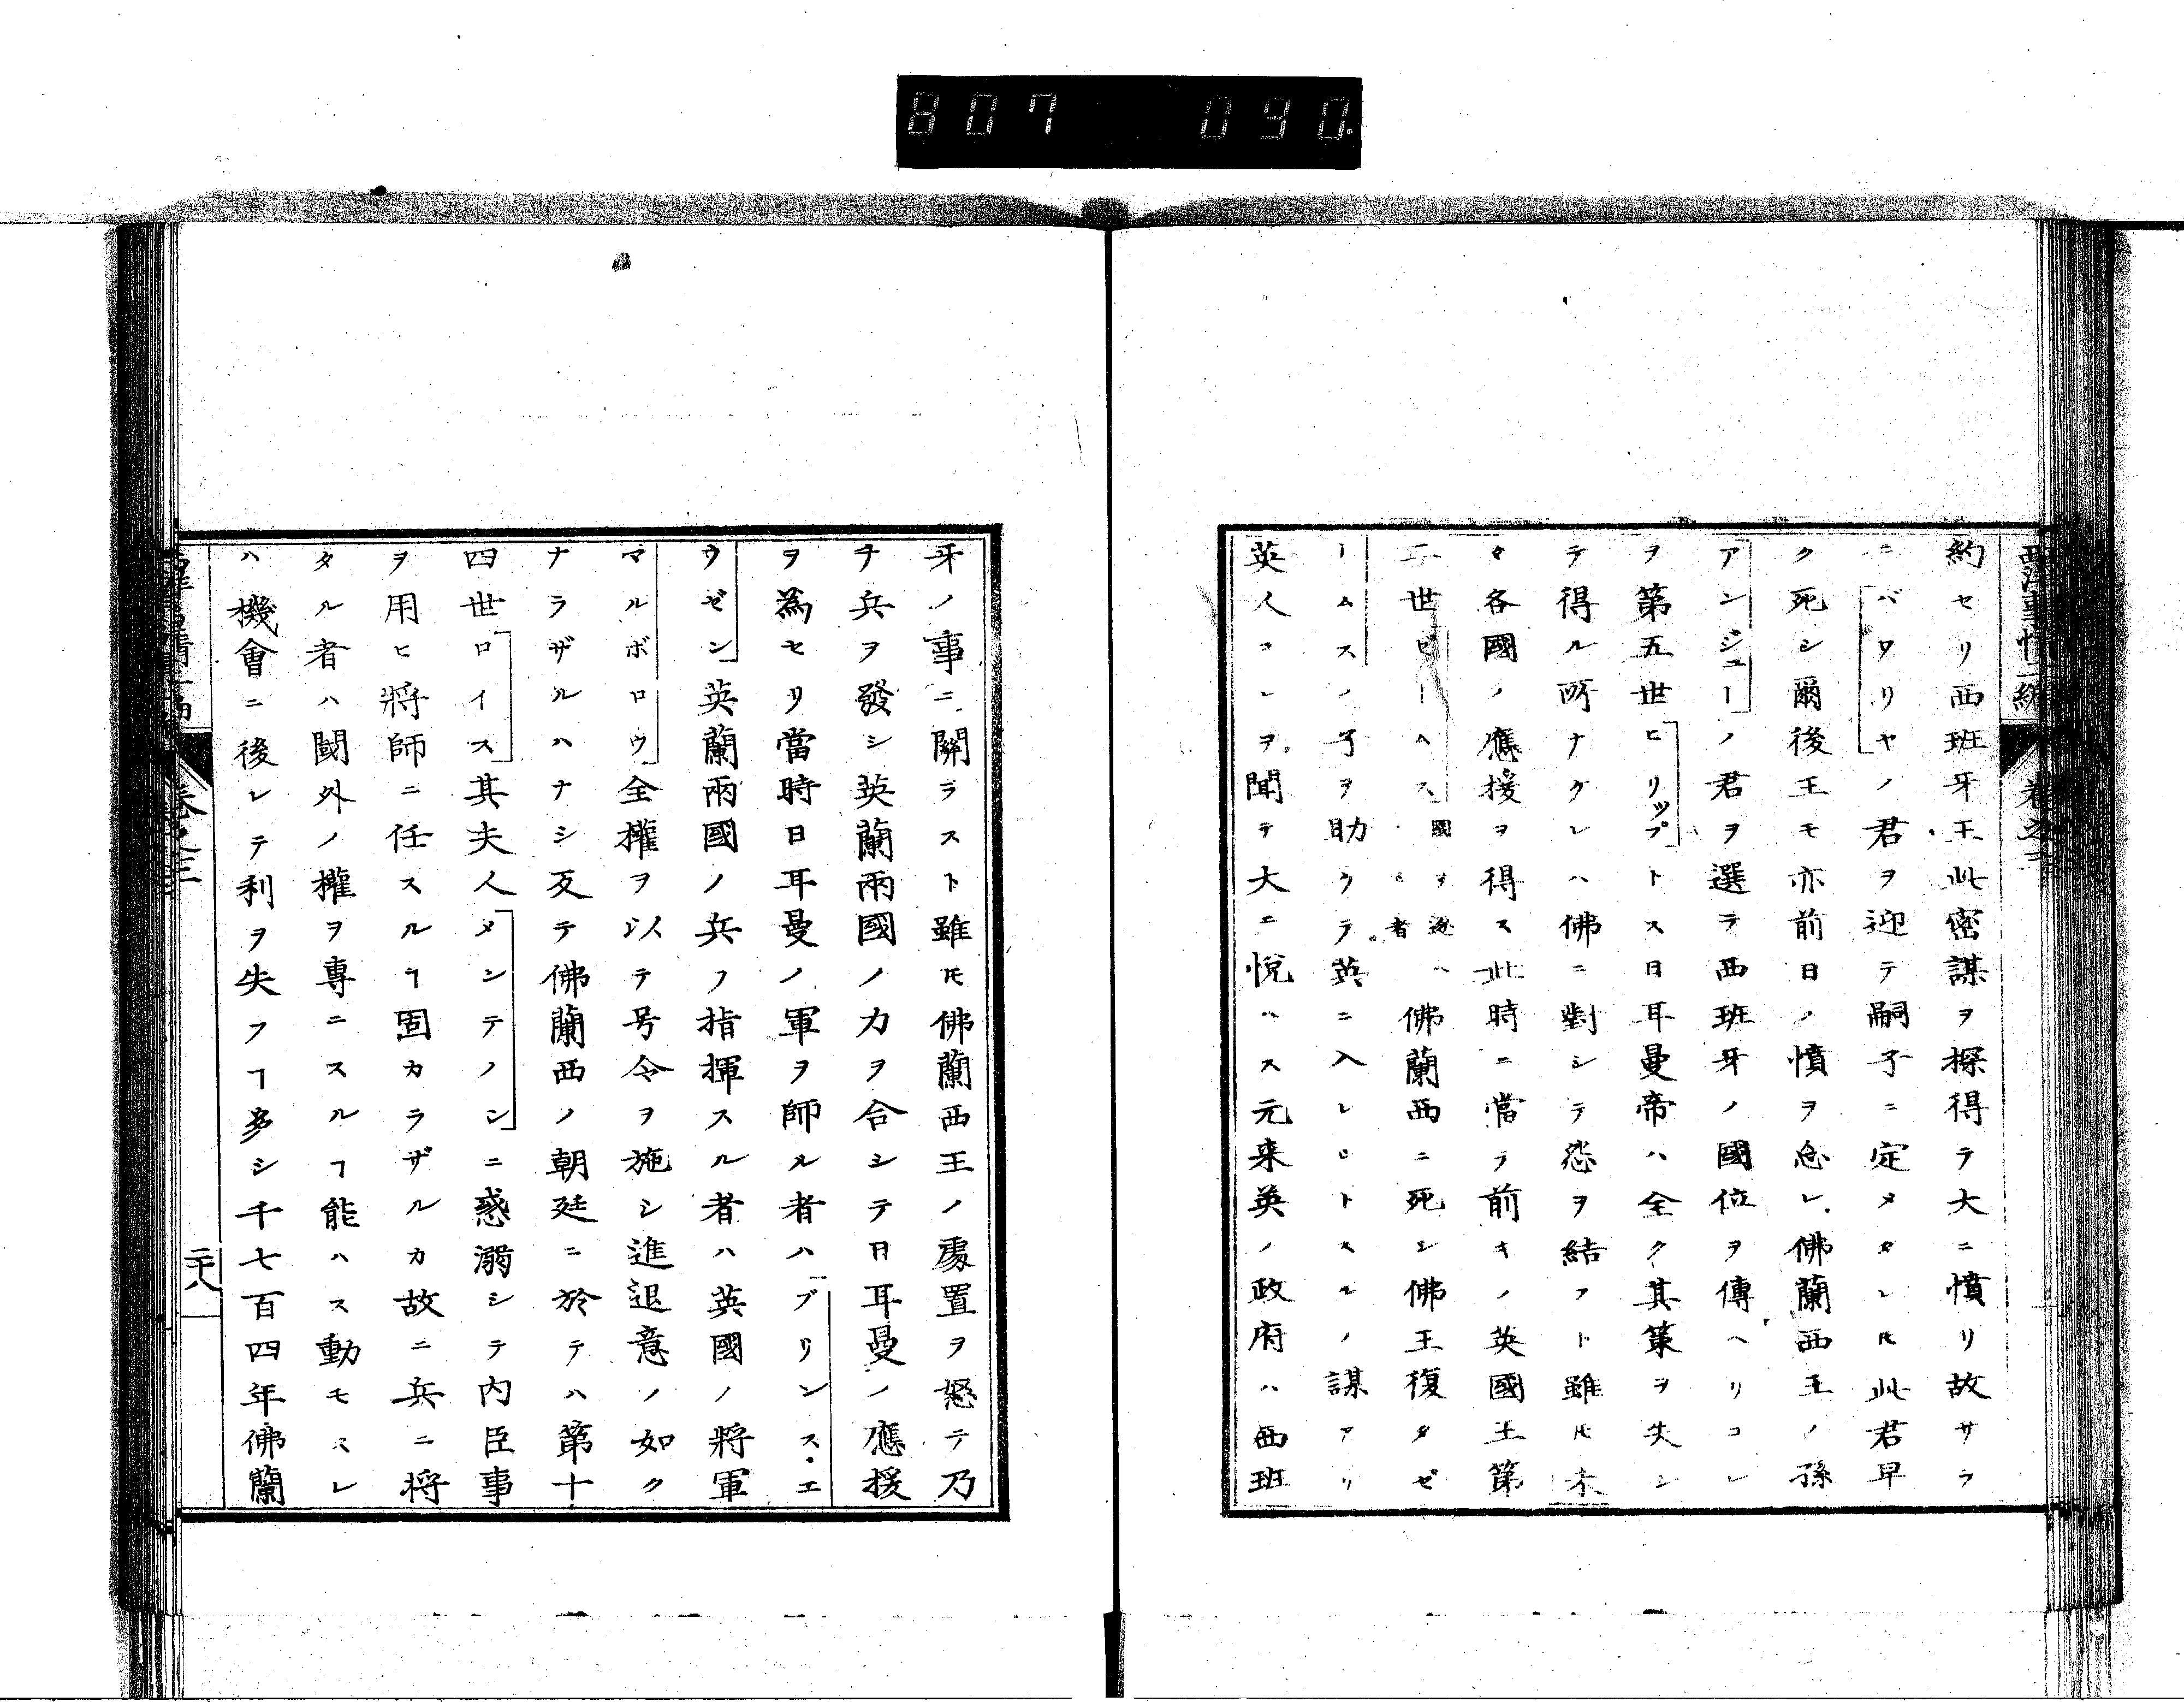 807 090.
西洋事情二編 卷之三
約セリ西班牙王此密謀ヲ探得テ大ニ憤リ故サラ
ニバワリヤノ君ヲ迎テ嗣子ニ定メタレ𪜈此君早
ク死シ爾後王モ亦前日ノ憤ヲ忘レ佛蘭西王ノ孫
アンジューノ君ヲ選テ西班牙ノ國位ヲ傳ヘリコレ
ヲ第五世ヒリップトス日耳曼帝ハ全ク其策ヲ失シ
テ得ル所ナケレハ佛ニ對シテ怨ヲ結フト雖𪜈未
タ各國ノ應援ヲ得ス此時ニ當テ前キノ英國王第
二世ゼームス國ヲ逐ハレシ者佛蘭西ニ死シ佛王復タゼ
ームスノ子ヲ助ケテ英ニ入レントスルノ謀アリ
英人コレヲ聞テ大ニ悅ハス元来英ノ政府ハ西班
牙ノ事ニ關ラスト雖𪜈佛蘭西王ノ處置ヲ怒テ乃
チ兵ヲ發シ英蘭兩國ノ力ヲ合シテ日耳曼ノ應援
ヲ為セリ當時日耳曼ノ軍ヲ師ル者ハブリンス・エ
ウゼン英蘭兩國ノ兵ヲ指揮スル者ハ英國ノ將軍
マルボロウ全權ヲ以テ号令ヲ施シ進退意ノ如ク
ナラザルハナシ反テ佛蘭西ノ朝廷ニ於テハ第十
四世ロイス其夫人メンテノンニ惑溺シテ内臣事
ヲ用ヒ將師ニ任スルヿ固カラザルカ故ニ兵ニ将
タル者ハ閫外ノ權ヲ專ニスルヿ能ハス動モスレ
ハ機會ニ後レテ利ヲ失フヿ多シ千七百四年佛蘭
西洋事情二編 卷之三 二十八